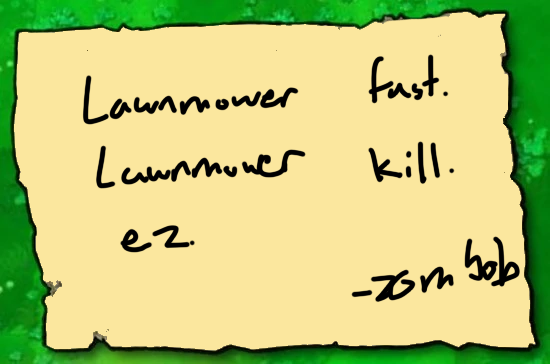 Lawnmower fast.
Lawnmower kill.
ez.
-zom bob